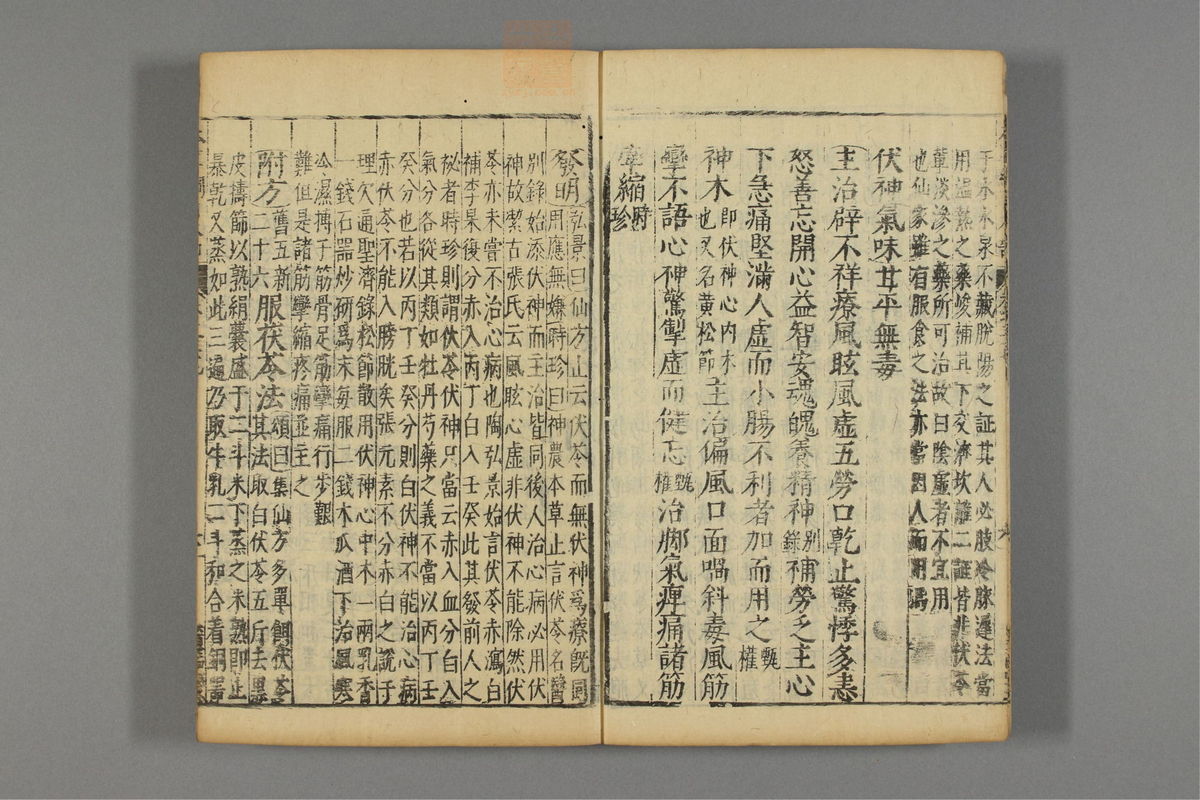 于水水泉不藏脫陽之証其人必肢冷脉遲法當
用溫熱之藥峻補其下交濟坎離二証皆非伏苓
軰淡滲之藥所可治故曰陰虛者不宜用
也仙家雖有服食之法亦當因人而用焉
伏神氣味甘平無毒
主治辟不祥療風眩風虛五勞口乾止驚悸多恚
怒善忘開心益智安魂魄養精神別錄補勞乏主心
下急痛堅滿人虛而小腸不利者加而用之甄權
神木即伏神心內木也又名黃松節主治偏風口面喎斜毒風筋
攣不語心神驚掣虛而健忘甄權治脚氣痺痛諸筋
牽縮時珍
發明弘景曰仙方止云伏苓而無伏神爲療既同
用應無嫌時珍曰神農本草止言伏苓名醫
別錄始添伏神而主治皆同後人治心病必用伏
神故潔古張氏云風眩心虛非伏神不能除然伏
苓亦未嘗不治心病也陶弘景始言伏苓赤瀉白
補李杲復分赤入丙丁白入壬癸此其發前人之
秘者時珍則謂伏苓伏神只當云赤入血分白入
氣分各從其類如牡丹芍藥之義不當以丙丁壬
癸分也若以丙丁壬癸分則白伏神不能治心病
赤伏苓不能入膀胱矣張元素不分赤白之說于
理欠通聖濟錄松節散用伏神心中木一兩乳香
一錢石器炒研爲末毎服二錢木瓜酒下治風寒
冷濕搏于筋骨足筋攣痛行步艱
難但是諸筋攣縮疼痛並主之
附方舊五新二十六服茯苓法頌曰集仙方多單餌伏苓
其法取白伏苓五斤去黑
皮擣篩以熟絹囊盛于二斗米下蒸之米熟即止
暴乾又蒸如此三遍乃取牛乳二斗和合着銅器